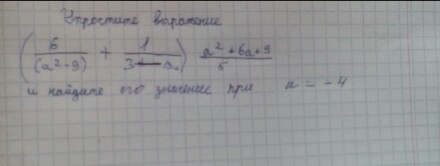 Упростите выражение
(6/(a²-9) + 1/(3-a)) a²+6a+9/5
и найдите его значение при a = -4